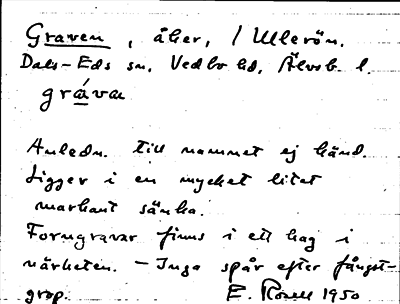 Graven, åker, / Ullerön.
Dals-Eds sn. Vedbo hd, Älvsb. l.
gráva
Anledn. till namnet ej känd.
Ligger i en mycket litet
markant sänka.
Forngravar finns i ett hag i
närheten. – Inga spår efter fångst-
grop. E. Rosell 1950